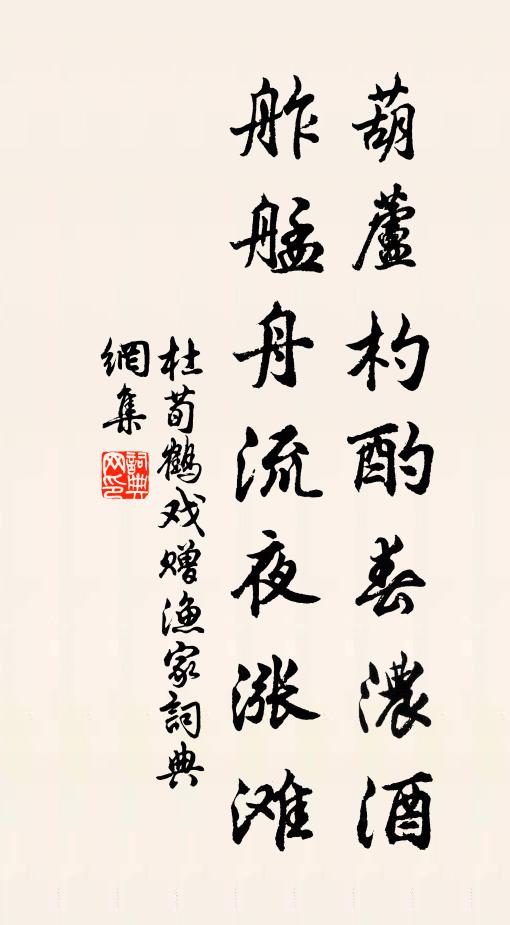 葫蘆杓酌春濃酒
舴艋舟流夜漲滩
杜荀鶴戏赠漁家詞典
網集
詞典網印